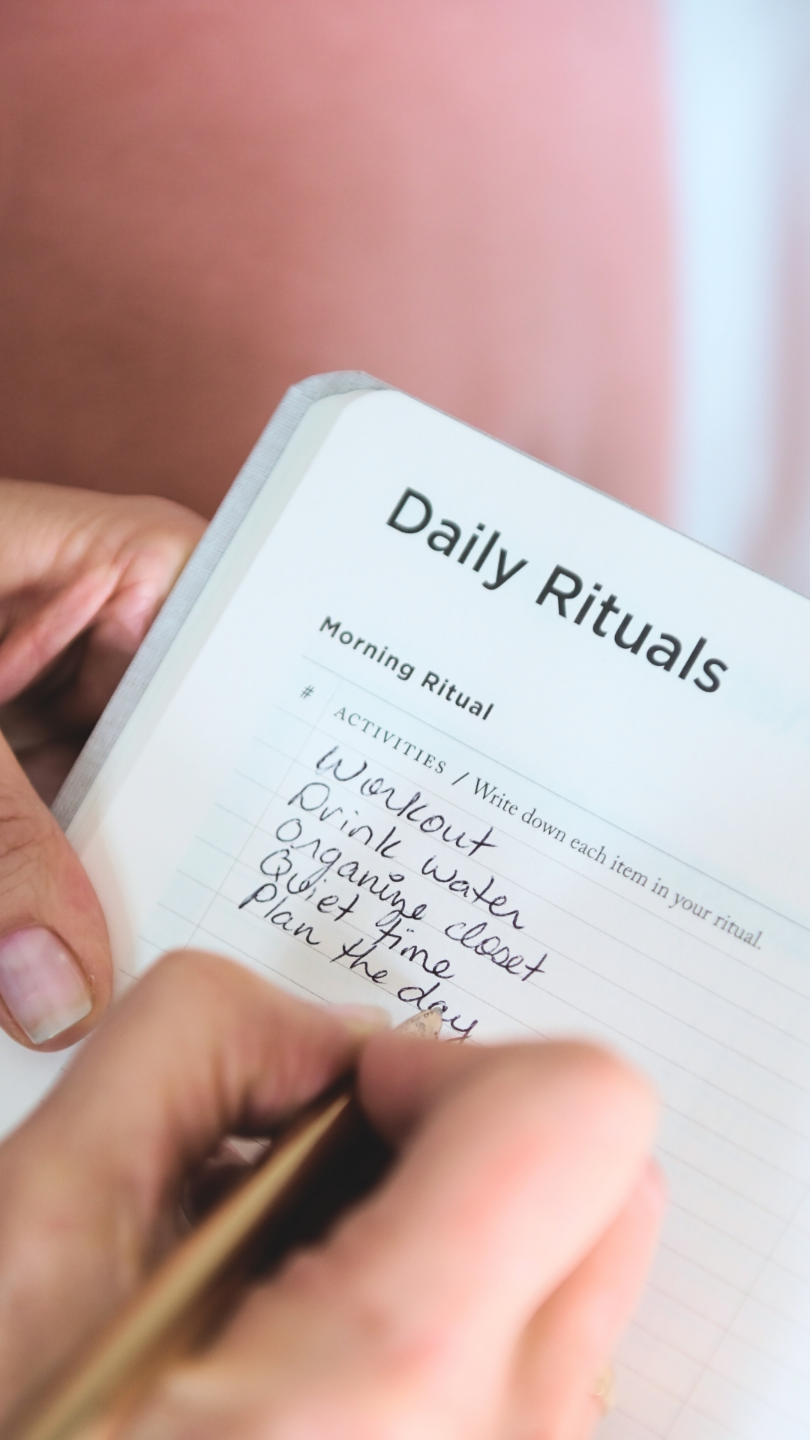 Daily Rituals
Morning Ritual
# ACTIVITIES / Write down each item in your ritual.
Workout
Drink water
Organize closet
Quiet time
Plan the day